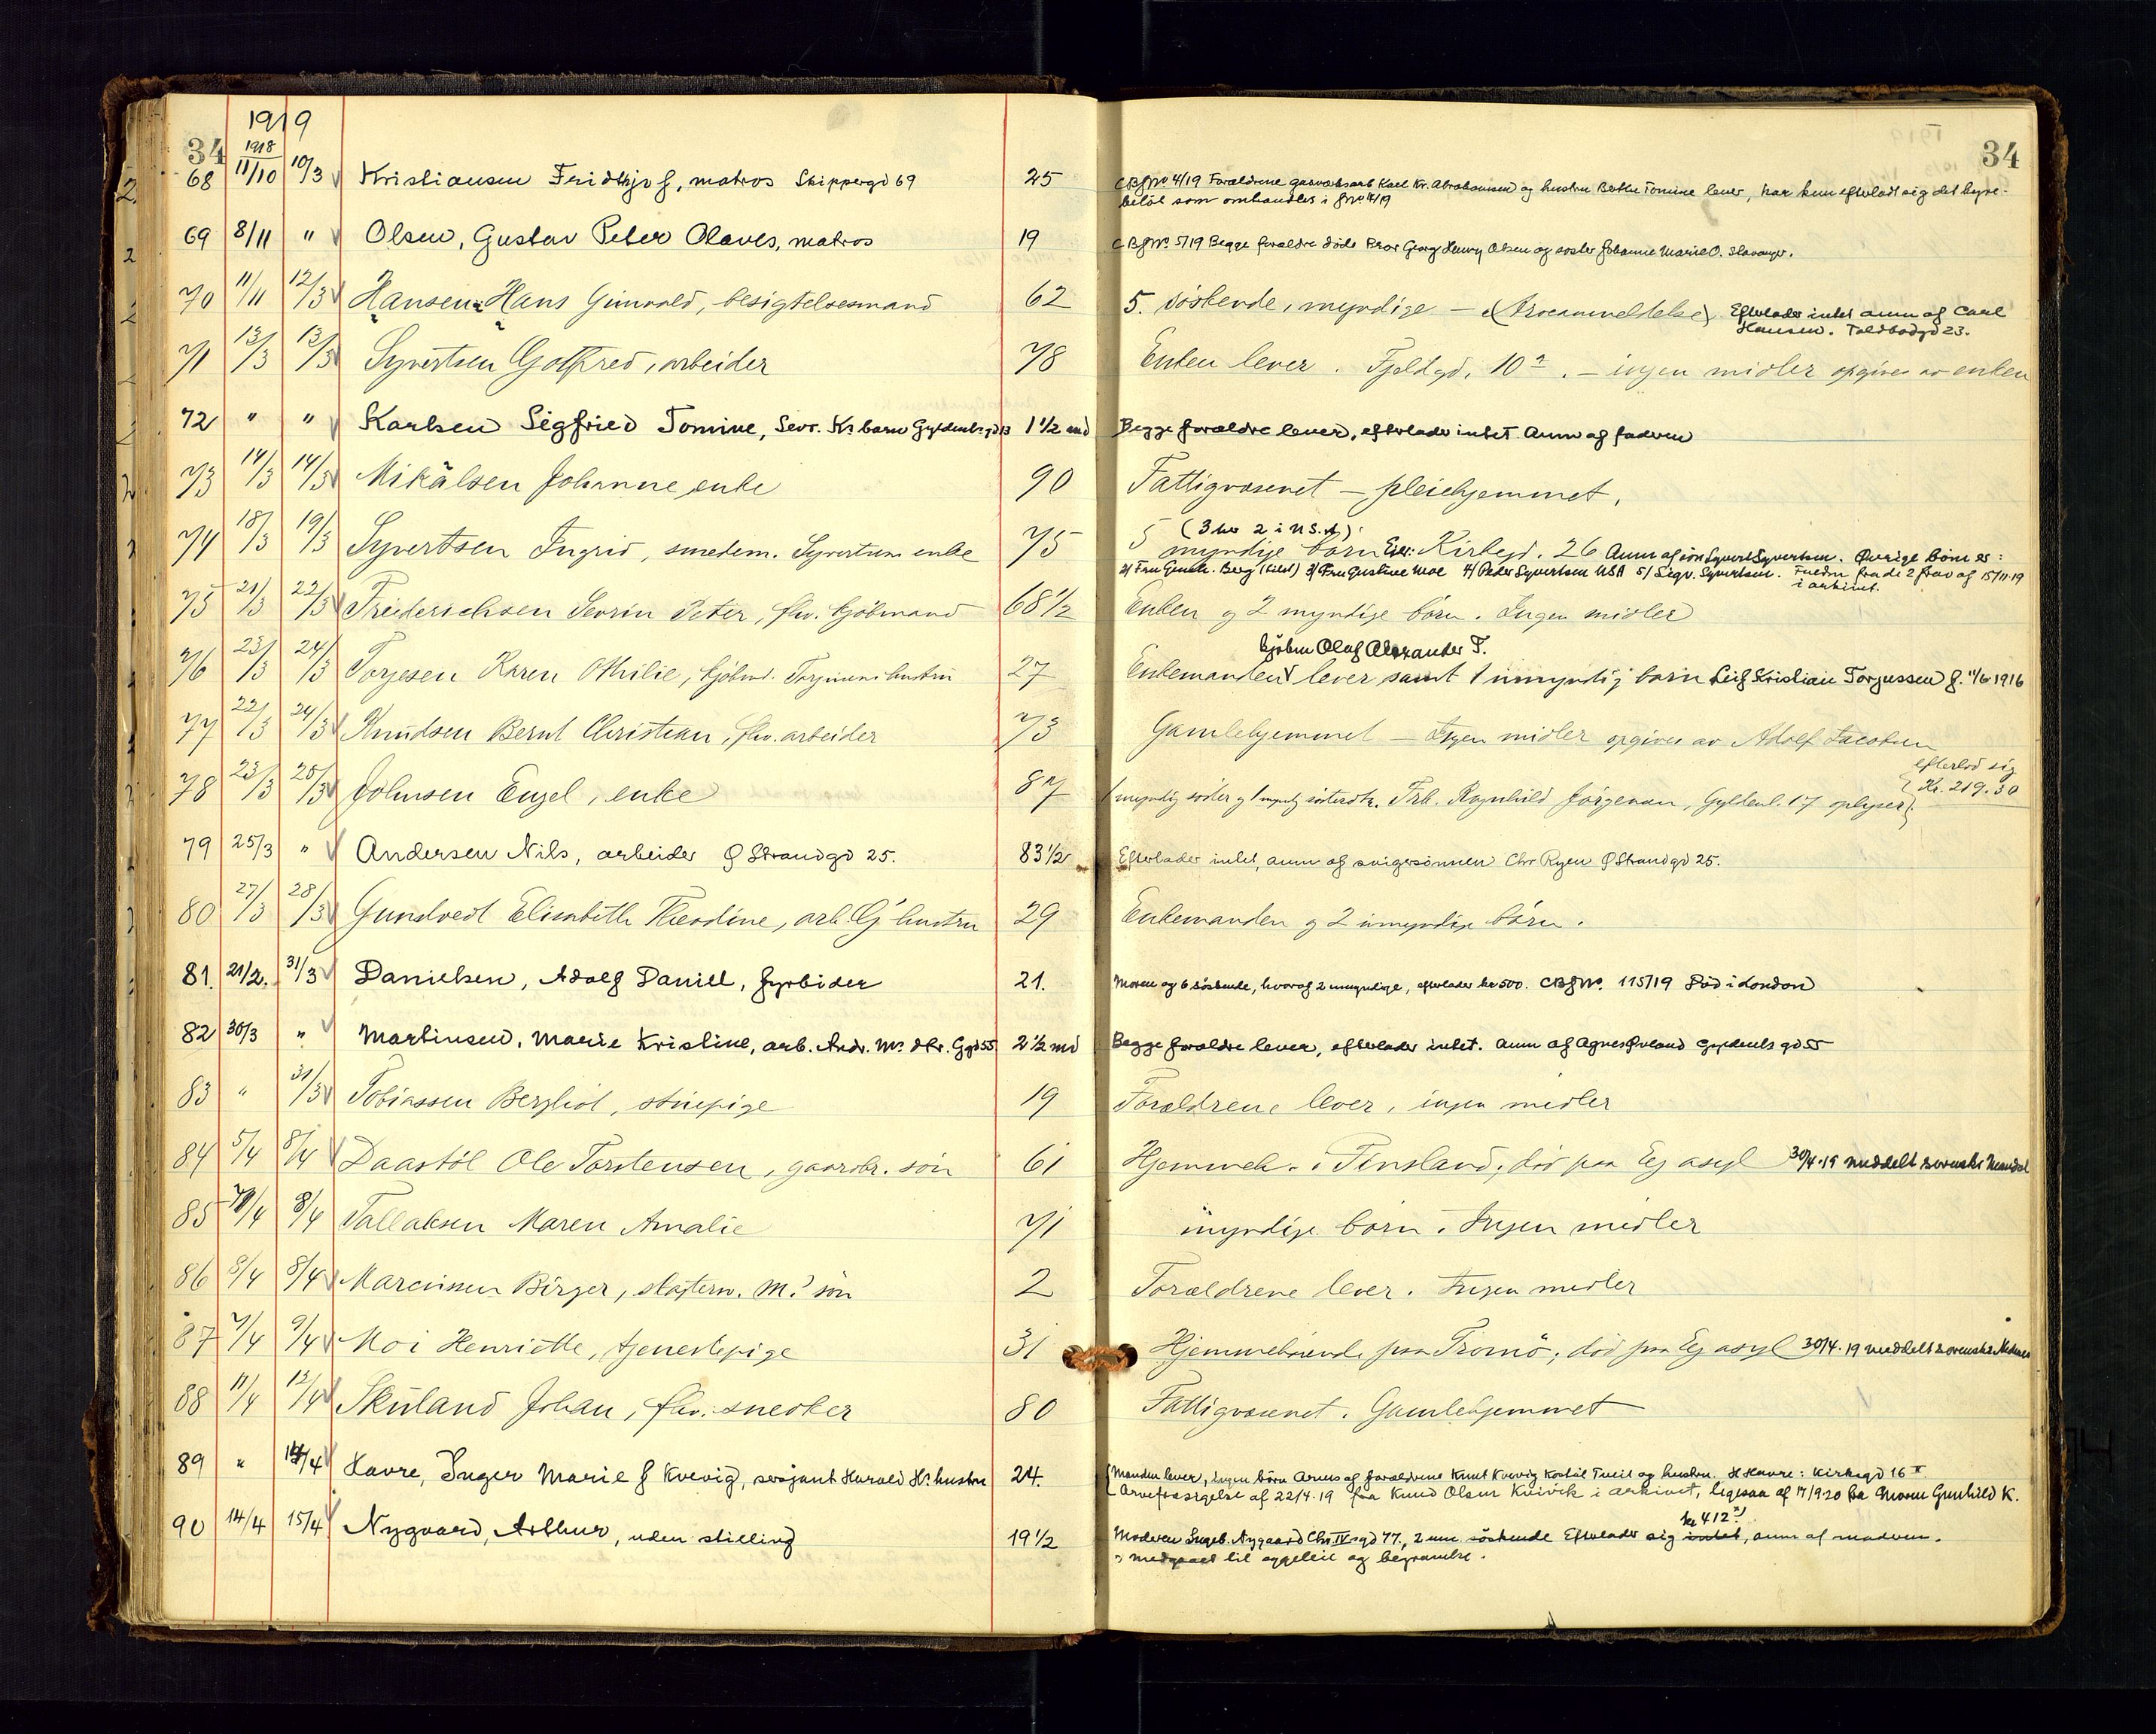 1919
34 34
1918
68 11/10 10/3 Kristiansen Fridtjof, matros Skippergd 69 25 CBfNo 4/19 Forældrene gasværksarb Karl Kr. Abrahamsen og hustru Berthe Tomine lever, har kun efterladt sig det hyre-
beløb som omhandles i fNo 4/19
69 8/11 " Olsen, Gustav Peter Olaves, matros 19 CBfNo. 5/19 Begge forældre døde Bror Georg Henry Olsen og søster Johanne Marie O. Stavanger.
70 11/11 12/3 Hansen Hans Gunvald, besigtelsesmand 62 5. söskende, myndige — (Arveanmeldelse) Efterlader intet anm af Carl
Hansen. Toldbodgd 23.
71 12/3 13/3 Syvertsen Gotfred, arbeider 78 Enken lever. Fjeldgd. 10 . — ingen midler opgives av enken
72 " " Karlsen Sigfried Tomine, Sevr. Ks barn Gyldenlsgd 13 1 1/2 md Begge forældre lever, efterlader intet. Anm af faderen
73 14/3 14/3 Mikälsen Johanne enke 90 Fattigvæsenet — pleiehjemmet.
(3 her 2 i U.S.A)
74 18/3 19/3 Syvertsen Ingrid, smedem. Syvertsens enke 75 5 myndige børn Eier: Kirkegd. 26 Anm af søn Syvert Syvertsen. Øvrige børn er:
2/ Fru Berg 3/ Fru Gustine Moe 4/ Peder Syvertsen USA 5/ Sigv. Syvertsen. fra de 2 frav af 15/11-19
i arkivet.
75 21/3 22/3 Friederichsen Sevrin Peter, fhv. kjöbmand 68 1/2 Enken og 2 myndige börn. Ingen midler
kjøbm Olaf Alexander T.
76 23/3 24/3 Torjesen Karen Othilie, kjöbmd. Torjesens hustru 27 Enkemanden lever samt 1 umyndig barn Leif Kristian Torjussen f. 1/6 1916
77 22/3 24/3 Knudsen Bernt Christian, fhv. arbeider 73 Gamlehjemmet — Ingen midler opgives av Adolf Jacobsen
efterlod sig
78 23/3 25/3 Johnsen Engel, enke 87 1 myndig søster og 1 myndig søsterdtr. Frk. Ragnhild Jörgensen, Gyldenl. 17 oplyser Kr. 219.30
79 25/3 " Andersen Nils, arbeider Ø Strandgd 25. 83 1/2 Efterlader intet, anm af svigersønnen Chr Ryen Ø Strandgd 25.
80 27/3 28/3 Gundvedt Elisabeth Theodine, arb. G' hustru 29 Enkemanden og 2 umyndige börn.
81. 21/2. 31/3 Danielsen, Adolf Daniel, fyrbøder 21. Moren og 6 søskende, hvoraf 2 umyndige, efterlader kr 500. CBfNo. 115/19 Død i London
82 30/3 " Martinsen, Marie Kristine, arb. Andr. Ms dtr. Ggd 55 2 1/2 md Begge forældre lever, efterlader intet. anm af Agnes Øvland Gyldenls gd 55
83 " 31/3 Tobiassen Bergliot, stuepige 19 Forældrene lever, ingen midler
84 5/4 8/4 Daastöl Ole Torstensen, gaardbr. sön 61 Hjemmeh. i Finsland, död paa Eg asyl 30/4.19 meddelt sorenskr Mandal
85 7/4 8/4 Tallaksen Maren Amalie 71 myndige børn. Ingen midler
86 8/4 8/4 Marcussen Birger, M.s sön 2 Forældrene lever. Ingen midler
87 7/4 9/4 Moi Henriette, tjenestepige 31 Hjemmehörende paa Tromö; död paa Eg asyl 30/4.19 meddelt sorenskr. Nedenes
88 11/4 12/4 Skuland Johan, fhv. snedker 80 Fattigvæsenet. Gamlehjemmet
89 " 14/4 Havre, Inger Marie f Kvevig, sersjant Harald Hs hustru 24. Manden lever, ingen børn Arves af forældrene Knut Kvevig Tveit og hustru. H Havre: Kirkegd 16 II
Arvefrasigelse af 22/4.19 fra Knud Olsen Kvivik i arkivet, ligesaa af 17/9.20 fra Moren Gunhild K.
kr 412
90 14/4 15/4 Nygaard, Arthur, uden stilling 19 1/2 Moderen Ingeb. Nygaard Chr.IVsgd 77, 2 um. søskende Efterlader sig intet, anm af moderen.
medgaaet til sygeleie og begravelse.